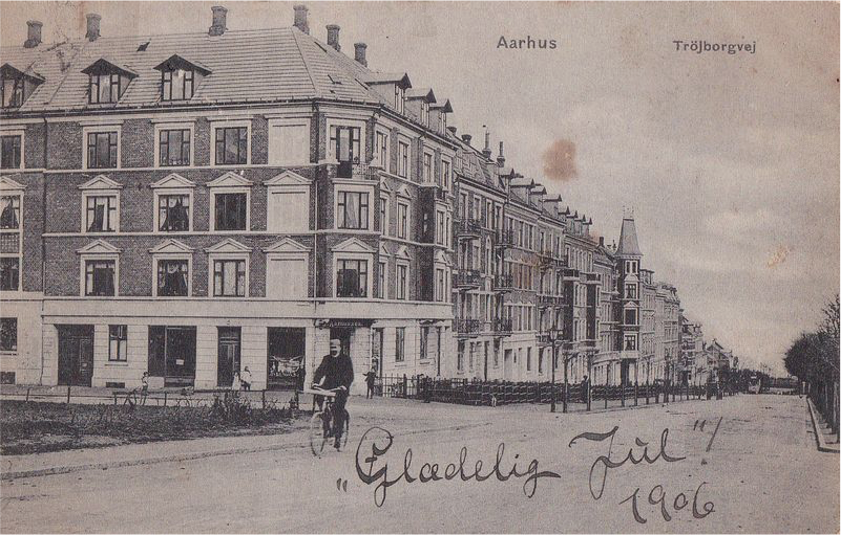 Aarhus
Tröjborgvej
„Glædelig Jul"!
1906